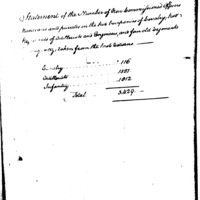 Statement of the Number of Non Commissioned Officers
Musicians and privates in the two Companies of Cavalry, two
of Artillerists and Engineers, and four old Regiments
taken from the last Returns
Cavalry 116
Artillerists 1501
Infantry 1812
Total 3429